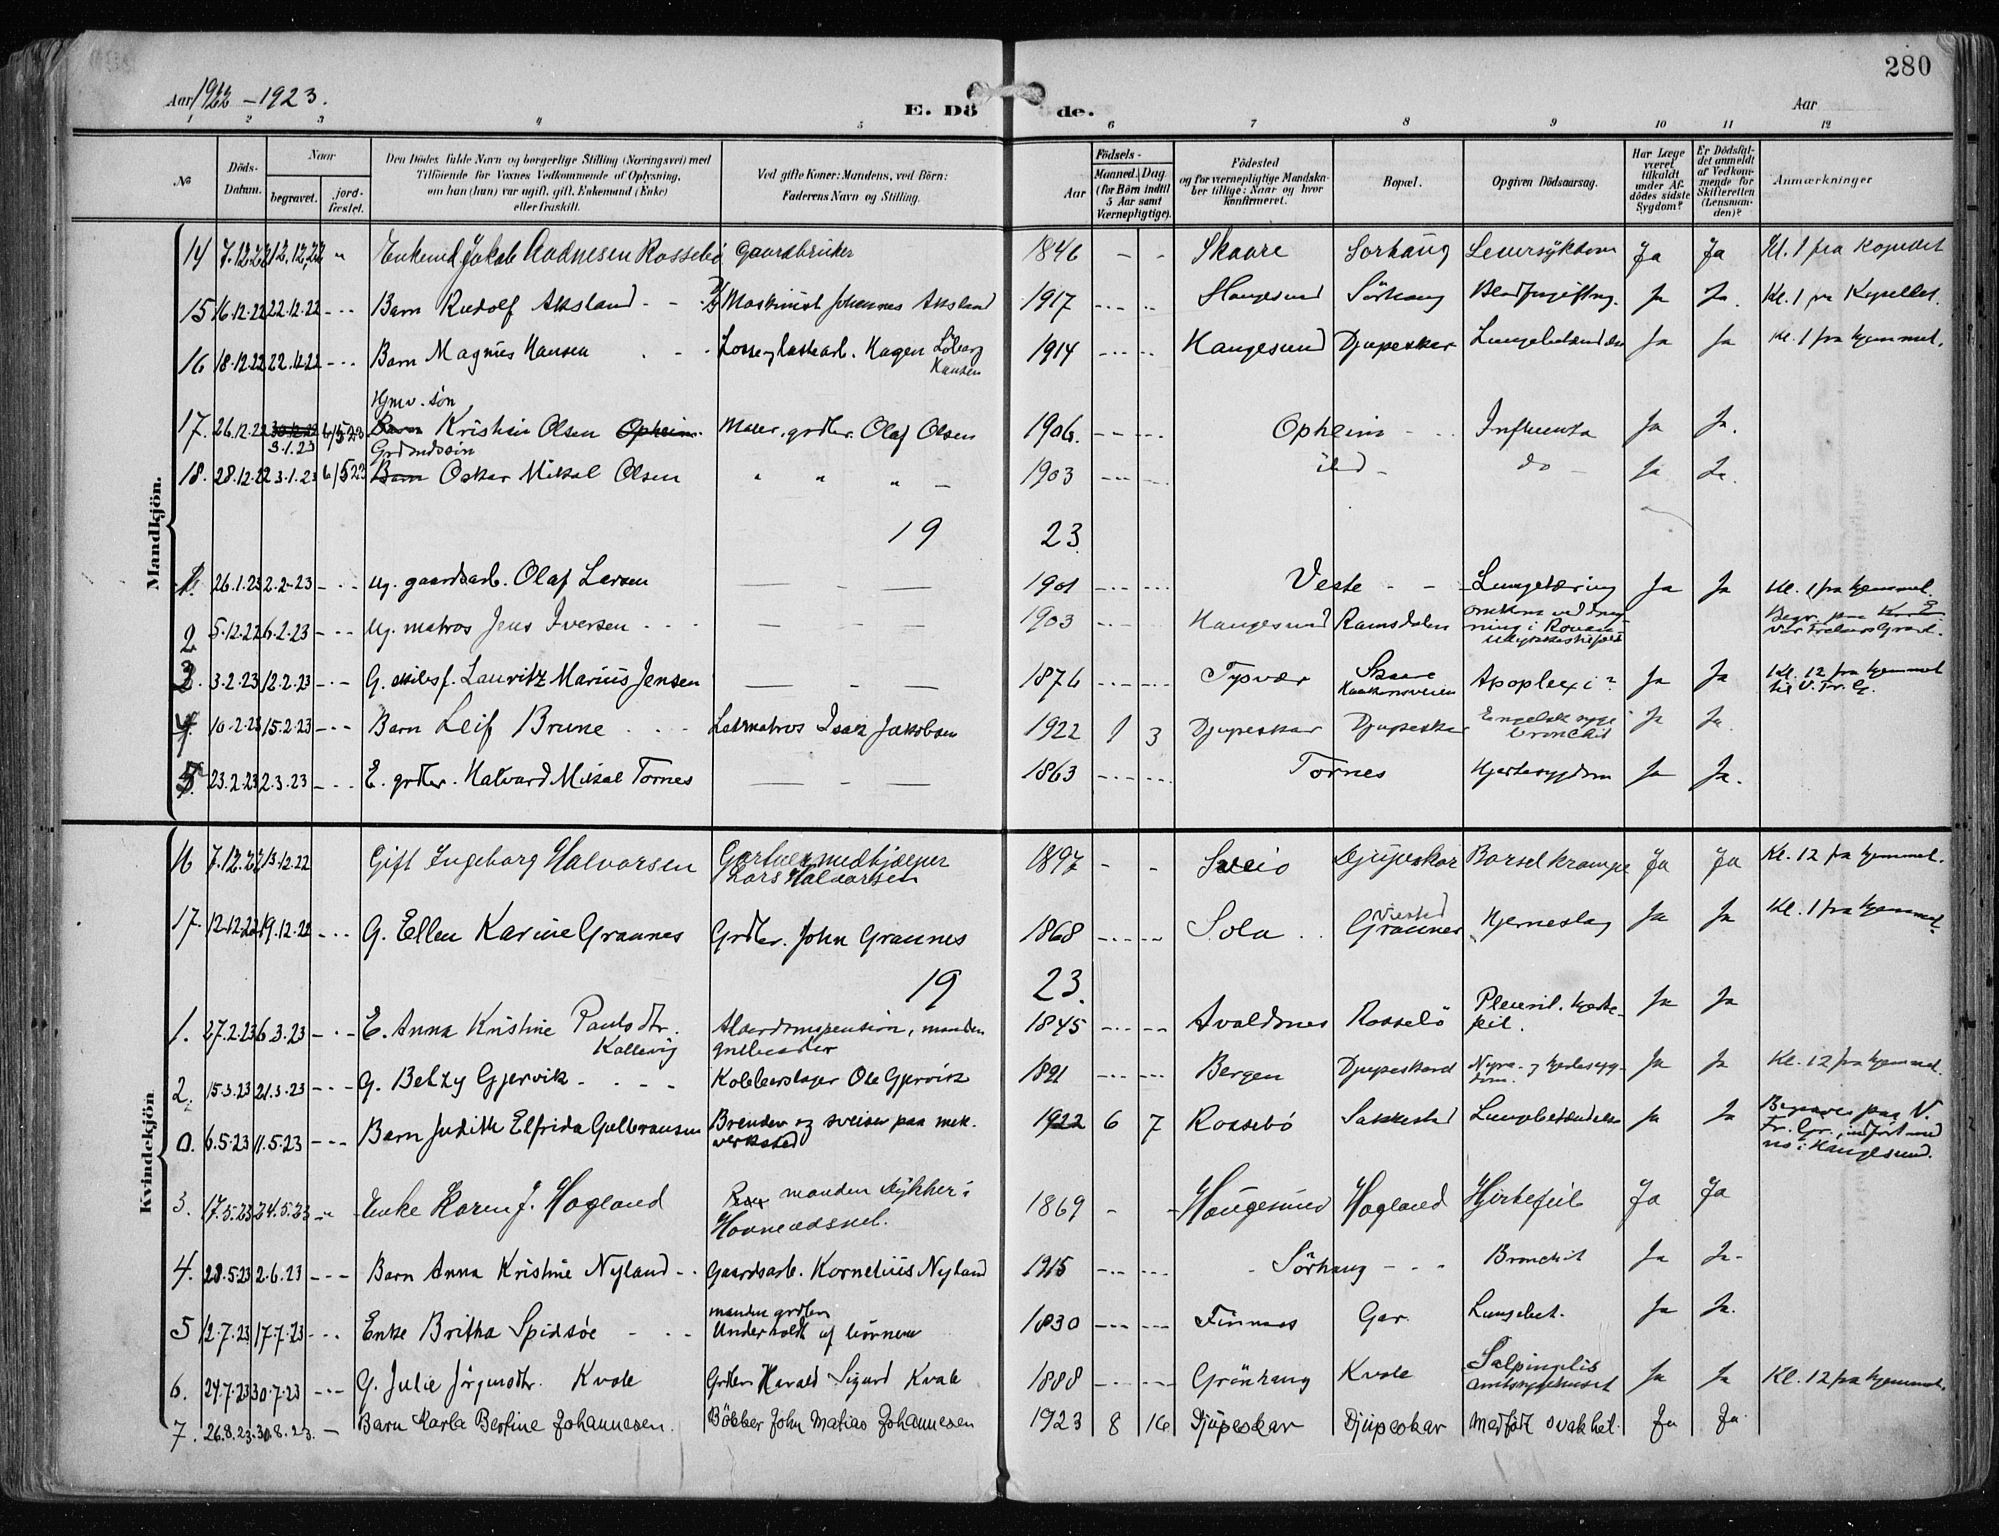 280
Aar 1922 - 1923.
E. Döde.
Aar
1 2 3 4 5 6 7 8 9 10 11 12
No
Döds-Datum.
Naar
begravet.
jord-fæstet.
Den Dödes fulde Navn og borgerlige Stilling (Næringsvei) med
Tilföiende for Voxnes Vedkommende af Oplysning,
om han (hun) var ugift, gift, Enkemand (Enke)
eller fraskilt.
Ved gifte Koner: Mandens, ved Börn:
Faderens Navn og Stilling.
Födsels-
Aar
Maaned. Dag
(for Börn indtil
5 Aar samt
Værnepligtige).
Födested
og for værnepligtige Mandska-
ber tillige: Naar og hvor
konfirmeret.
Bopæl.
Opgiven Dödsaarsag.
Har Læge
været
tilkaldt
under Af-
dödes sidste
Sygdom?
Er Dödsfal-
det anmeldt
af Vedkom-
mende for
Skifteretten
(Lensman-
den)?
Anmærkninger
Mandkjön.
14 7.12.22 12.12.22 " Enkemd Jakob Aadnesen Rossebö Gaardbruker 1846 - - Skaare Sorhaug Leversykdom Ja Ja Kl. 1 fra Kapellet
15 16.12.22 22.12.22 - - - Barn Rudolf Aksland - - Maskinist Johannes Aksland 1917 Haugesund Sörhaug Blodforgiftng. Ja Ja. Kl. 1 fra Kapellet.
16 18.12.22 22.12.22 - - - Barn Magnus Hansen Losse og lastearb. Hagen Hansen 1914 Haugesund Djupeskar Lungebetændelse Ja Ja Kl. 1 fra hjemmet.
Hjmv. sön
17. 26.12.22 30.12.22 6/5 23 Barn Kristian Olsen Opheim. Maler, grdbr. Olaf Olsen 1906. Opheim - - - Influensa Ja Ja.
3.1.23 Grdmdssön
18. 28.12.22 3.1.23 6/5 23 Barn Oskar Mikal Olsen " " " - 1903 ibd - do - Ja Ja.
19 23.
1. 26.1.23 2.2.23 - - - Ug. gaardsarb. Olaf Larsen — — — 1901 Veste - - Lungetæring Ja Ja Kl. 1 fra hjemmet.
2 5.12.22 6.2.23 - - - Ug. matros Jens Iversen - - - 1903 Haugesund Ramsdalen
Vår Frelsers Gravl.
3. 3.2.23 12.2.23 - - - G. Lauritz Marius Jensen — — — 1876 Tysvær Skaare Apoplexi Ja Ja Kl. 12 fra hjemmet
til V. Fr. G.
4 10.2.23 15.2.23 - - - Barn Leif Brune - - - Letmatros Isak Jakobsen 1922 1 3 Djupeskar Djupeskar Engelsk syge Ja Ja.
bronchit
5 23.2.23 2.3.23 - - - E. grdbr. Halvard Mikal Tornes — — — 1863 Tornes Hjertesygdom Ja Ja.
Kvindekjön
16 7.12.22 13.12.22 Gift Ingeborg Halvorsen Gartnermedhjælper 1897 - - Sveio Djupeskar Barselkrampe Ja Ja Kl. 12 fra hjemmet.
Lars Halvorsen
17. 12.12.22 19.12.22 - - - G. Ellen Karine Graanes Grdbr. John Graanes 1868 Sola . . Graanes Hjerneslag Ja Ja Kl. 1 fra hjemmet
19 23.
1. 27.2.23 6.3.23 - - - E. Anna Kristine Paulsdtr. Alderdomspension, manden 1845 Avaldsnes Rossebö Pleurit. hjerte- Ja Ja
Kallevig feil.
2. 15.3.23 21.3.23 - - - G. Betzy Gjervik - - - - Kobberslager Ole Gjervik 1891 Bergen Djupeskard Nyre- og hjertesyg- Ja Ja Kl. 12 fra hjemmet.
dom.
0. 6.5.23 11.5.23 - - - Barn Judith Elfrida Gulbransen Brender og sveiser paa mek. 1922 6 7 Rossebö Sakkestad Lungebetændelse Ja Ja Begraves paa V.
verksted Fr. Gr., indfört med
no i Haugesund.
3. 17.5.23 24.5.23 " Enke Karen J. Hogland manden stykker i 1869 - - Haugesund Hogland Hjertefeil Ja Ja
Havnevæsnet.
4. 28.5.23 2.6.23 - - - Barn Anna Kristine Nyland - - Gaardsarb. Kornelius Nyland 1915 - Sörhaug - - - Bronchit Ja Ja.
5 12.7.23 17.7.23 - - - Enke Britha Spidsöe - - - manden grdbr. 1830 Finnaas Gar. Lungebet. Ja Ja.
Underholdt af börnene
6. 24.7.23 30.7.23 - - - G. Julie Jörgensdtr. Kvale Grdbr. Harald Sigurd Kvale 1888 Grönhaug Kvale Salpingitis Ja Ja Kl. 12 fra hjemmet.
amtssygehuset
7. 26.8.23. 30.8.23. - Barn Karla Bertine Johannesen. Bökker John Matias Johannesen 1923 8 16 Djupeskar Djupeskar Medfödt svakhet. Ja Ja